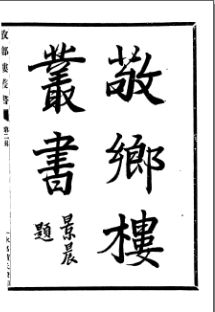 敬鄉樓
叢書
景晨
題
敬鄉樓叢書
第二輯